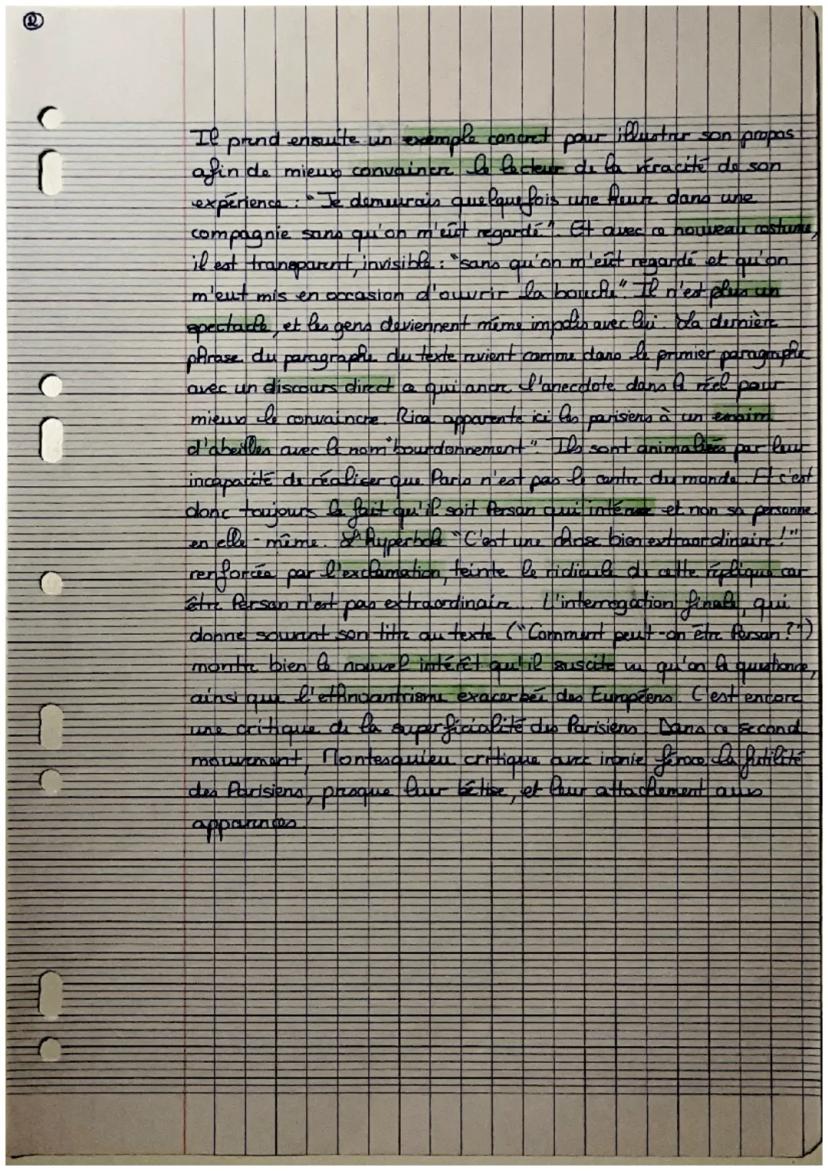 ②
Il prend ensuite un exemple concret pour illustrer son propos
afin de mieux convaincre le lecteur de la véracité de son
expérience : "Je demeurais quelquefois une heure dans une
compagnie sans qu'on m'eût regardé". Et avec ce nouveau costume,
il est transparent, invisible : "sans qu'on m'eût regardé et qu'on
m'eut mis en occasion d'ouvrir la bouche". Il n'est plus un
spectacle, et les gens deviennent même impolis avec lui. La dernière
phrase du paragraphe du texte revient comme dans le premier paragraphe
avec un discours direct a qui ancre l'anecdote dans le réel pour
mieux le convaincre. Rica apparente ici les parisiens à un essaim
d'abeilles avec le nom "bourdonnement". Ils sont animalisés par leur
incapacité de réaliser que Paris n'est pas le centre du monde. Et c'est
donc toujours le fait qu'il soit Persan qui intéresse et non sa personne
en elle-même. L'hyperbole "C'est une chose bien extraordinaire !"
renforcée par l'exclamation, teinte le ridicule de cette réplique car
être Persan n'est pas extraordinaire... L'interrogation finale, qui
donne souvent son titre au texte ("Comment peut-on être Persan ?")
montre bien le nouvel intérêt qu'il suscite vu qu'on le questionne,
ainsi que l'ethnocentrisme exacerbé des Européens. C'est encore
une critique de la superficialité des Parisiens. Dans ce second
mouvement, Montesquieu critique avec ironie féroce la futilité
des Parisiens, presque leur bêtise, et leur attachement aux
apparences.